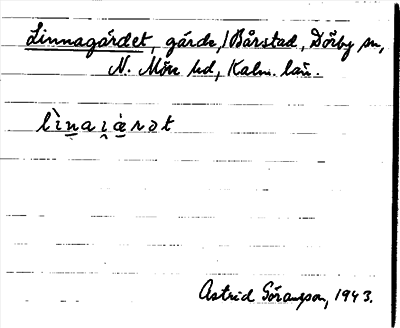 Linnagärdet, gärde, i Bårstad, Dörby sn,
N. Möre hd, Kalm. län.
lìnaiàrət
Astrid Göransson, 1943.